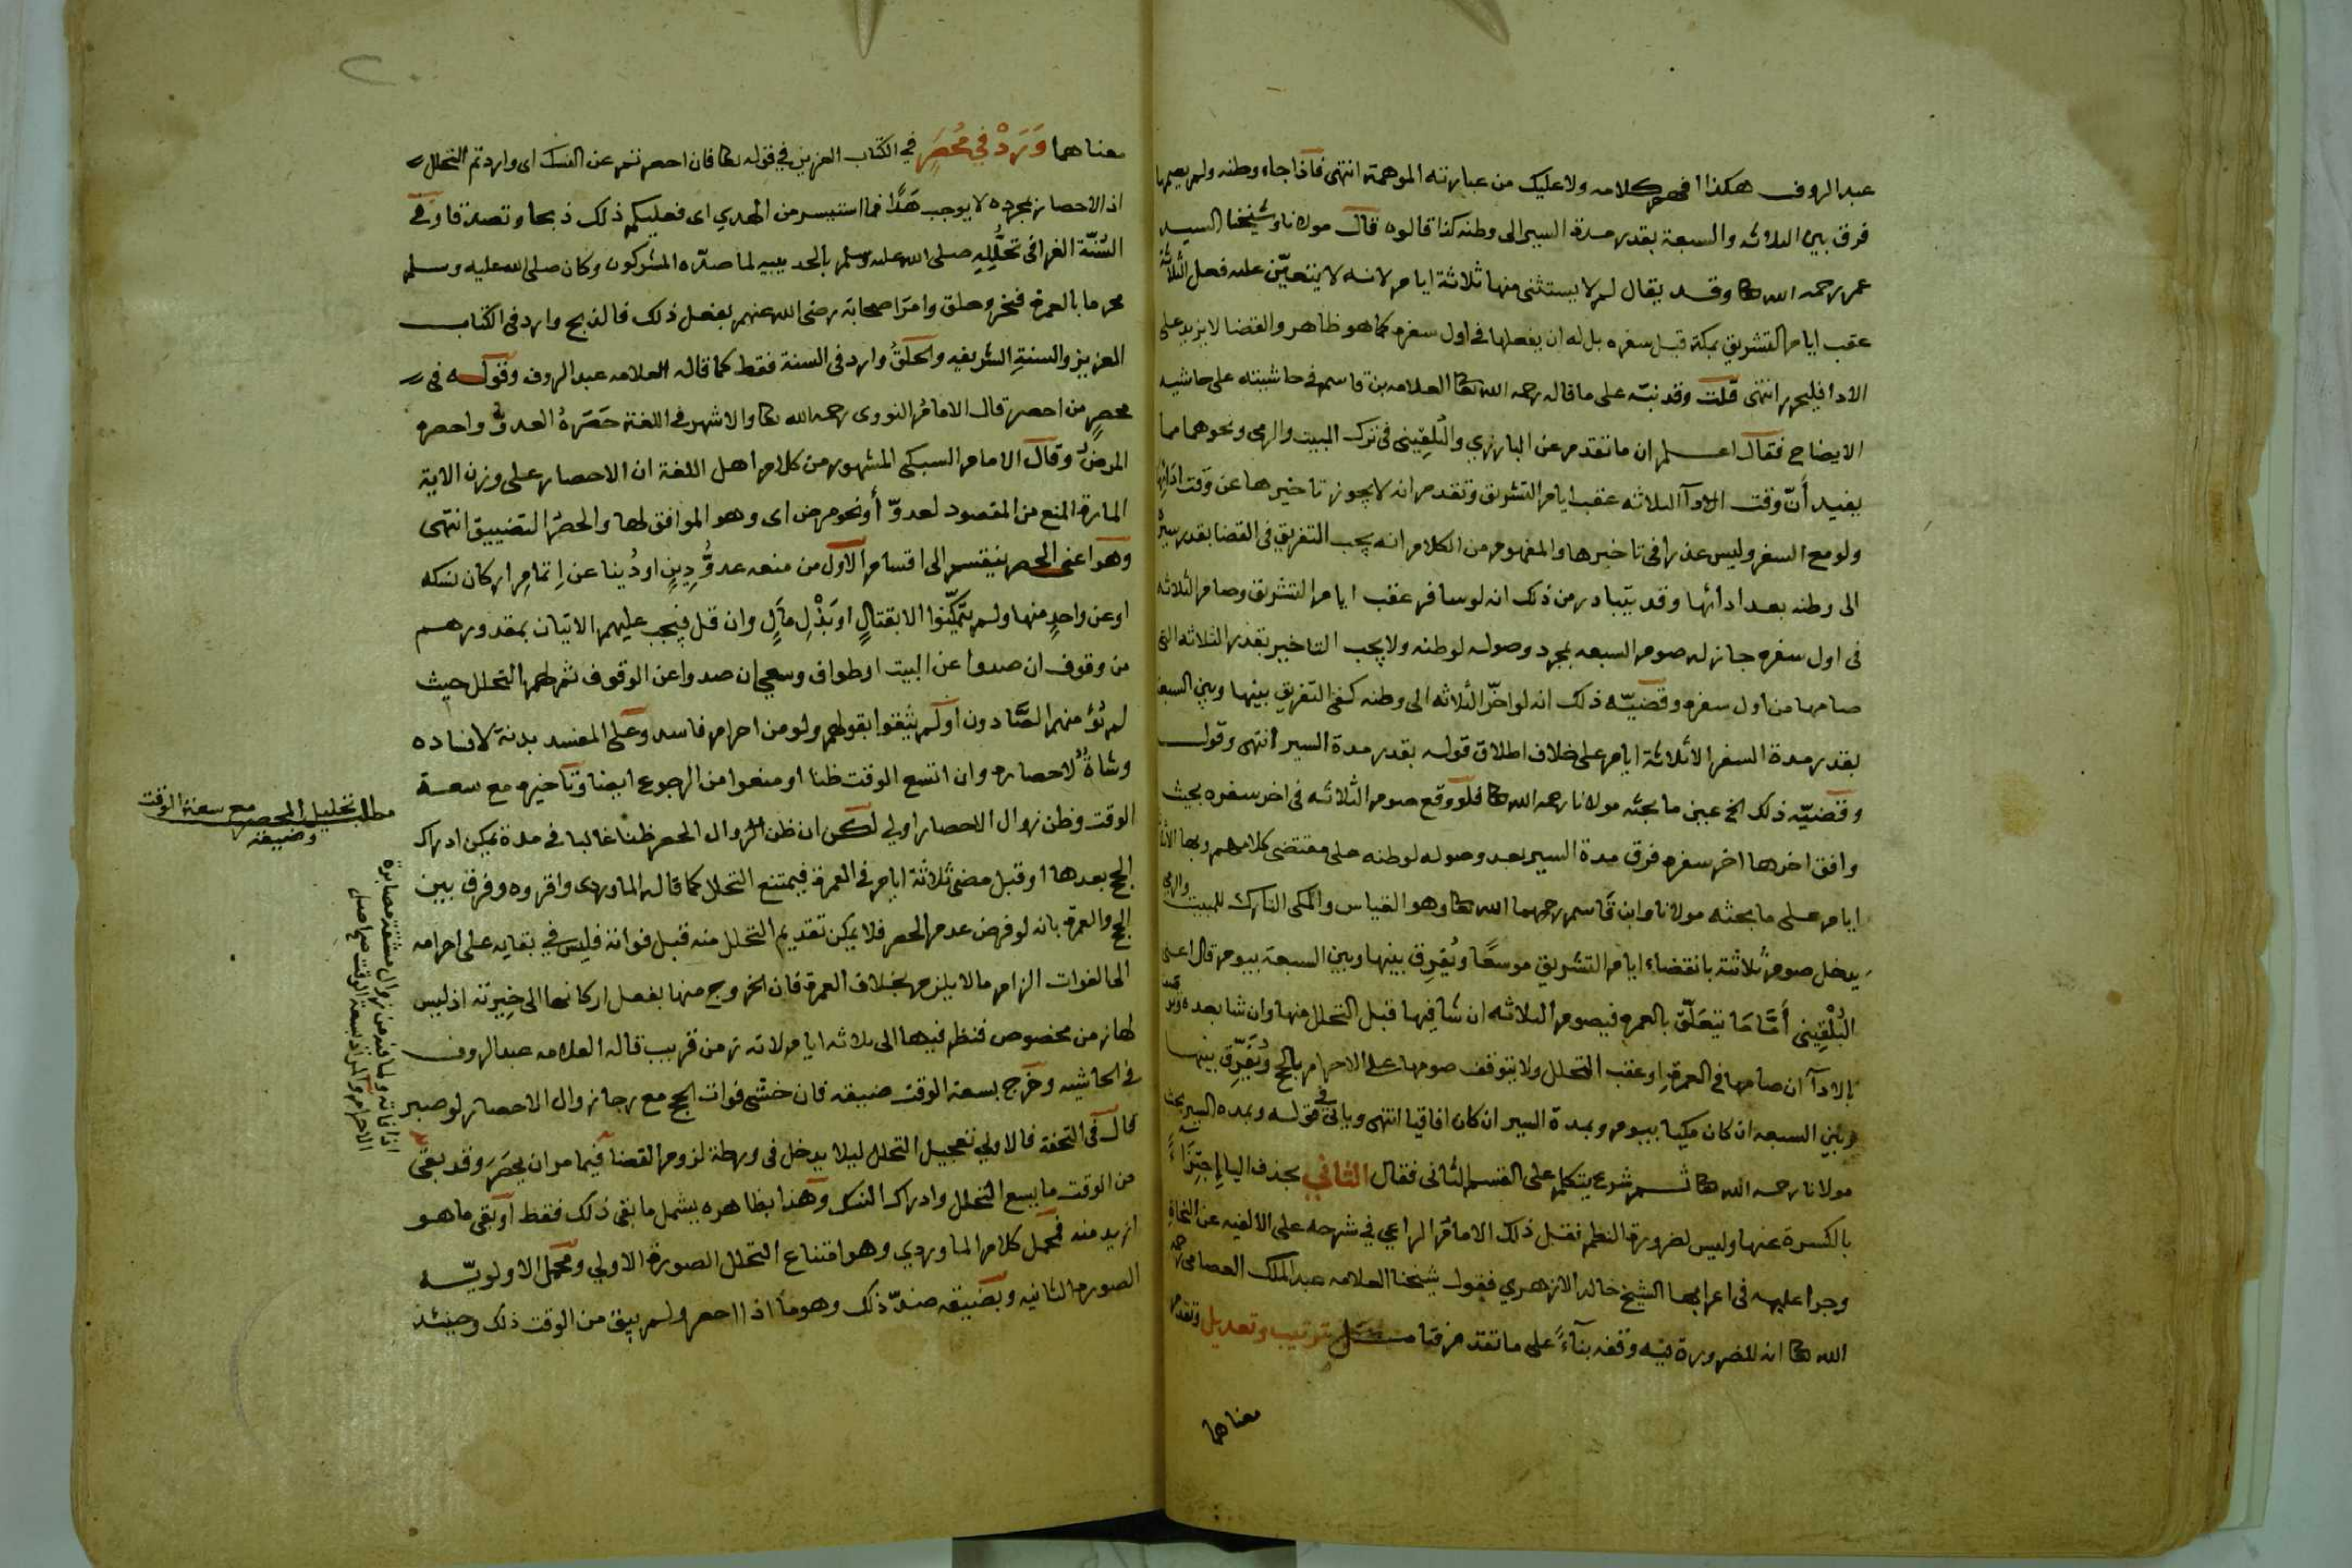 عبد الروف هكذا افهم كلامه ولا عليك من عبارته الموهمة انتهى فاذا جاء وطنه ولم يصمها
فرق بين الثلاثه والسبعة بقدر مدة السير الى وطنه كذا قالوه قال مولانا وشيخنا السيد
عمر رحمه الله تعا وقد يقال لم لا يستثنى منها ثلاثة ايام لانه لا يتعيّن عليه فعل الثلاثة
عقب ايام التشريق بمكة قبل سفره بل له ان يفعلها في اول سفره كما هو ظاهر والقضا لا يزيد على
الادا فليحرر انتهى قلت وقد نبّه على ما قاله رحمه الله تعا العلامه بن قاسم في حاشيته على حاشيه
الايضاح فقال اعلم ان ما تقدم عن البارزي والبُلقِيني في ترك المبيت والرمى ونحوهما مما
يفيد أنّ وقت الادآ الثلاثه عقب ايام التشريق وتقدم انه لا يجوز تاخيرها عن وقت ادائها
ولو مع السفر وليس عذرا في تاخيرها والمفهوم من الكلام انه يجب التفريق في القضا بقدر سيره
الى وطنه بعد ادائها وقد يتبادر من ذلك انه لو سافر عقب ايام التشريق وصام الثلاثه
في اول سفره جاز له صوم السبعه بمجرد وصوله لوطنه ولا يجب التاخير بقدر الثلاثه التي
صامها من اول سفره وقضيّه ذلك انه لو اخّر الثلاثه الى وطنه كفى التفريق بينها وبين السبعة
بقدر مدة السفر الا ثلاثة ايام على خلاف اطلاق قوله بقدر مدة السير انتهى وقوله
وقضيّه ذلك الخ عين ما بحثه مولانا رحمه الله تعا فلو وقع صوم الثلاثه في اخر سفره بحيث
وافق اخرها اخر سفره فرق مدة السير بعد وصوله لوطنه على مقتضى كلامهم وبها الا ثلاثة
ايام على ما بحثه مولانا وابن قاسم رحمهما الله تعا وهو القياس والمكى التارك للمبيت والرمي
يدخل صوم ثلاثته بانقضاء ايام التشريق موسعًا ويُفرِق بينها وبين السبعة بيوم قال اعنى
البُلْقِيني أمّا مَا يتعَلّق بالعمره فيصوم الثلاثه ان شا فيها قبل التحلل منها وان شا بعده
بالادآ ان صامها في العمرةِ او عقب التحلل ولا يتوقف صومها على الاحرام بالحج ويُفَرِّق بينها
وبين السبعه ان كان مكيا بيوم وبمدة السير ان كان افاقيا انتهى وياتى في قوله وبمده السير بحث
مولانا رحمه الله تعا ثم شرع يتكلم على القسم الثانى فقال الثاني بحذف اليا إجتِزَآءً
بالكسرة عنها وليس لضرورة النظم نقل ذلك الامام الراعي في شرحه على الالفيه عن النحاةِ
وجرا عليه في اعرابها الشيخ خالد الازهري فقول شيخنا العلامه عبد الملك العصامى رحمه
الله تعا انه للضرورة فيه وقفه بنآءً على ما تقدم قتا مّل ترتيب وتعديل وتقدم
معناهما
معناهما وَرَدْ في مُحصَرِ في الكتاب العزيز في قوله تعا فان احصرتم عن النسك اى واردتم التحلل
اذ الاحصار بمجرده لا يوجب هَدًا فما استيسر من الهدي اى فعليكم ذلك ذبحا وتصدقا وفي
السُّنّة الغرا في تحلُّلِهِ صلى الله عليه وسلم بالحديبيه لما صدّه المشركون وكان صلى الله عليه وسلم
محرما بالعمره فنحر وحلق وامرَ اصحابه رضى الله عنهم بفعل ذلك فالذبح وارد في الكتاب
العزيز والسنةِ الشريفه والحَلقُ وارد في السنة فقط كما قاله العلامه عبد الروف وقوله في
محصرٍ من احصر قال الامامُ النووى رحمه الله تعا والاشهر في اللغة حَصَرَهُ العدوُّ واحصره
المرضُ وقال الامام السبكى المشهور من كلام اهل اللغة ان الاحصار على وزن الاية
المارة المنع من المقصود لعدوّ أو نحو مرض اى وهو الموافق لها والحصرُ التضييق انتهى
وهو اعنى الحصر ينقسم الى اقسام الاول من منعه عدوُّ دِينٍ او دُينا عن إتمامِ اركان نسكه
او عن واحدٍ منها ولم يتمكّنوا الا بقتالٍ او بَذْلِ مالٍ وان قل فيجب عليهم الاتيان بمقدورهم
من وقوف ان صدوا عن البيت او طواف وسعي ان صدوا عن الوقوف ثم لهم التحلل حيث
لم يُؤمنهم الصّادون او لم يثقوا بقولهم ولو من احرام فاسد وعلى المفسد بدنة لافساده
وشاةٌ لاحصاره وان اتسع الوقت ظنا او منعوا من الرجوع ايضا وتاخيره مع سعة
الوقت وظن زوال الاحصار اولي لكن ان ظن الزوال الحصر ظنا غالبا في مدة يمكن ادراك
الحج بعدها او قبل مضى ثلاثة ايام في العمرة فيمتنع التحلل كما قاله الماوردى واقروه وفرق بين
الحج والعمرة بانه لو فرض عدم الحصر فلا يمكن تقديم التحلل منه قبل فواته فليس في بقايه على احرامه
الى الفوات الزام ما لا يلزم بخلاف العمرة فان الخروج منها بفعل اركانها الى خِيرته اذ ليس
لها زمن مخصوص فنظر فيها الى ثلاثه ايام لانه زمن قريب قاله العلامه عبد الروف
في الحاشيه وخَرَج بسعة الوقت ضيقه فان خشى فوات الحج مع رجا زوال الاحصار لو صبر
قال في التحفة فالاولي تعجيل التحلل ليلا يدخل في ورطة لزوم القضا فيما مر ان يحصَرَ وقد بقى
من الوقت ما يسع التحلل وادراك النسك وهذا بظاهره يشمل ما بقى ذلك فقط او بقى ما هو
ازيد منه فمحمل كلام الماوردي وهو امتناع التحلل الصورة الاولي ومحمل الاولويّه
الصوره الثانيه وبضيقه ضدّ ذلك وهو ما اذا احصر ولم يبق من الوقت ذلك وحينئذ
مطلب تحليل المحصر مع سعة الوقت
وضيقه
اذا فاته ولما فيه من زوال مشقة مصابرة
الاحرام والمراد بسعة الوقت